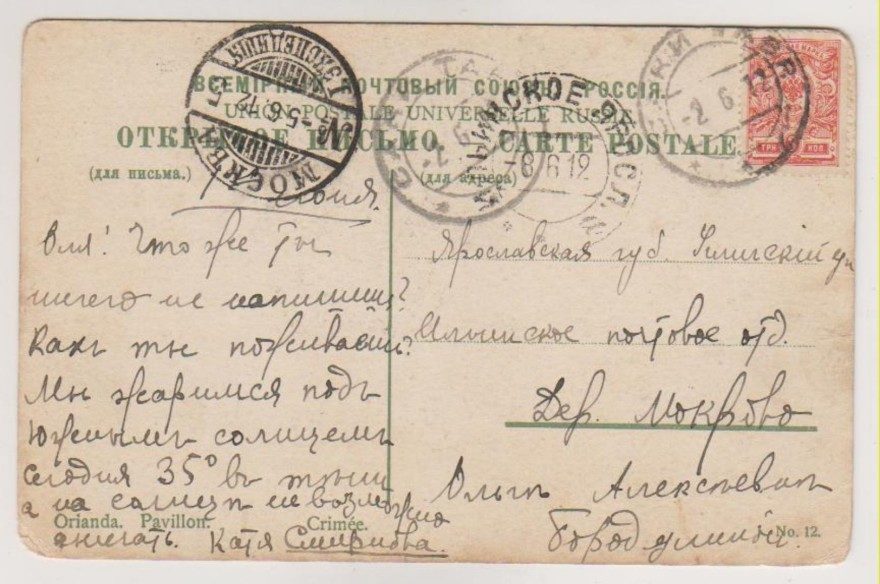 ВСЕМІРНЫЙ ПОЧТОВЫЙ СОЮЗЪ. РОССІЯ.
UNION POSTALE UNIVERSELLE RUSSIE
ОТКРЫТОЕ ПИСЬМО. CARTE POSTALE
(для письма.)
(для адреса)
МОСКВА
5-6 12
2 6 12
ИЛЬИНСКОЕ ЯРОСЛ
6 6 12
2 6 12
ТРИ КОП
Оля! Что же ты
ничего не напишишь?
Какъ ты поживаешь?
Мы жаримся подъ
южнымъ солнцемъ
сегодня 35° въ тѣни
а на солнцѣ невозможно
лежать. Катя Смирнова.
Ярославская губ. Угличскій у.
Ильинское почтовое отд.
Дер. Мокрово
Ольгѣ Алексѣевнѣ
Orianda. Pavillon. Crimée.
No. 12.